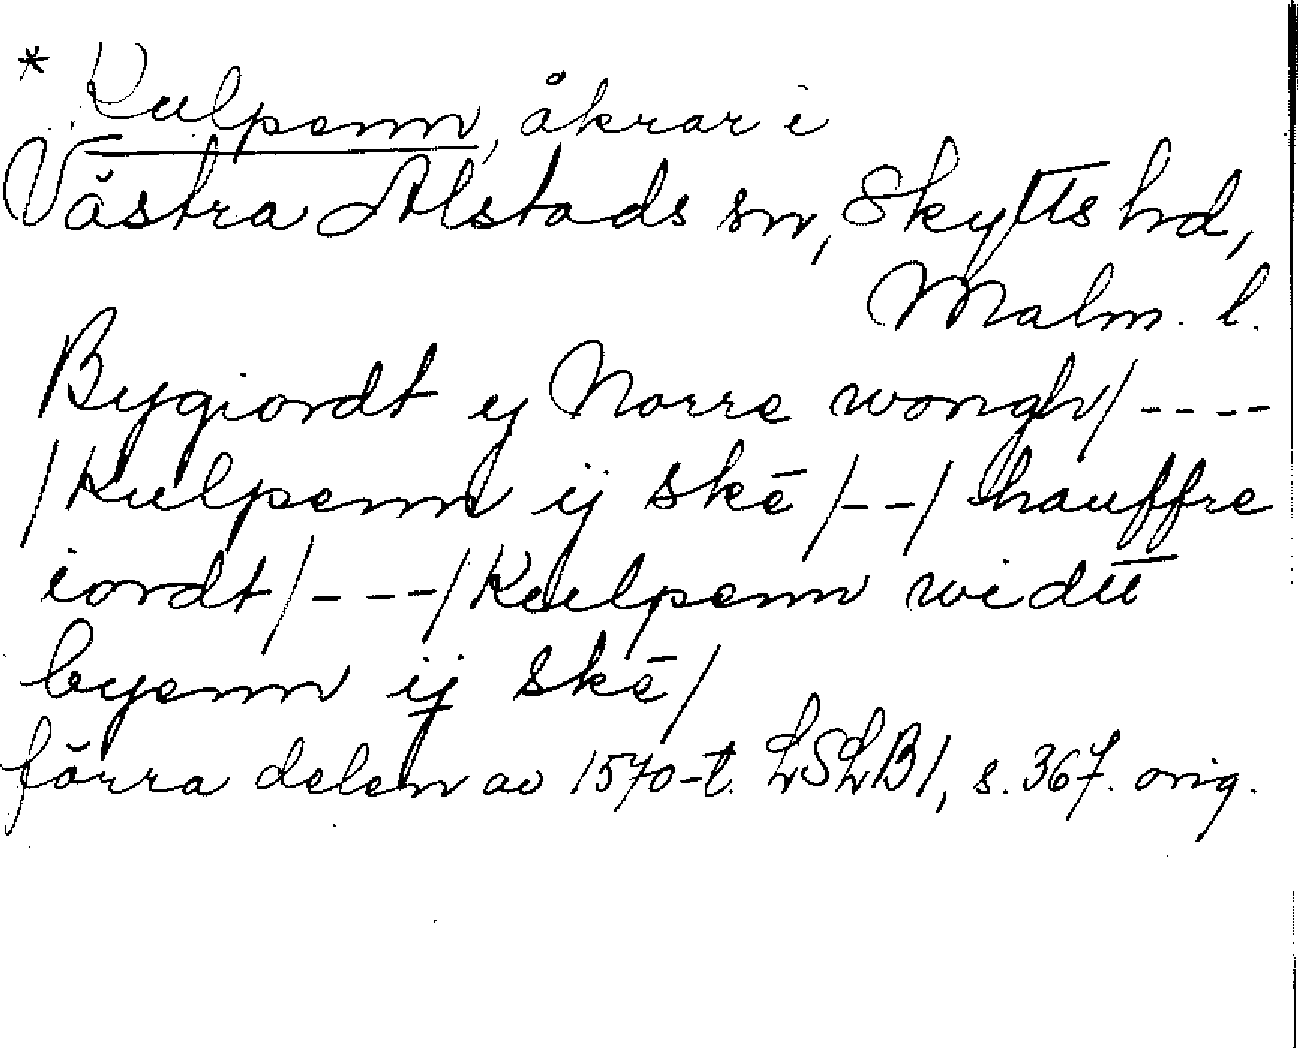 * Kulpenn, åkrar i
Västra Alstads sn, Skytts hd,
Malm. l.
Bygiordt ij Norre wongh/----
/Kulpenn ij skē/--/hauffre
iordt/---/Kulpenn widtt
byenn ij skē/
förra delen av 1570-t. LSLB1, s. 367. orig.